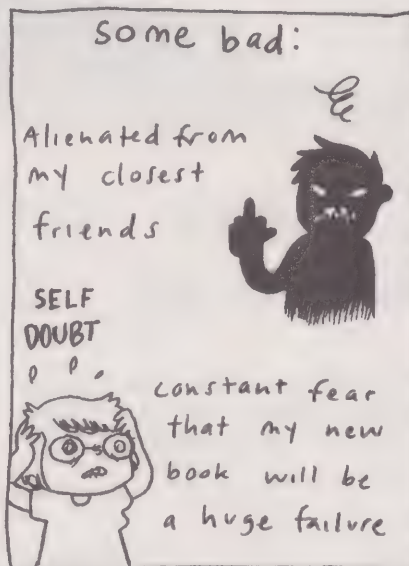 some bad:
Alienated from
my closest
friends
SELF
DOUBT
constant fear
that my new
book will be
a huge failure